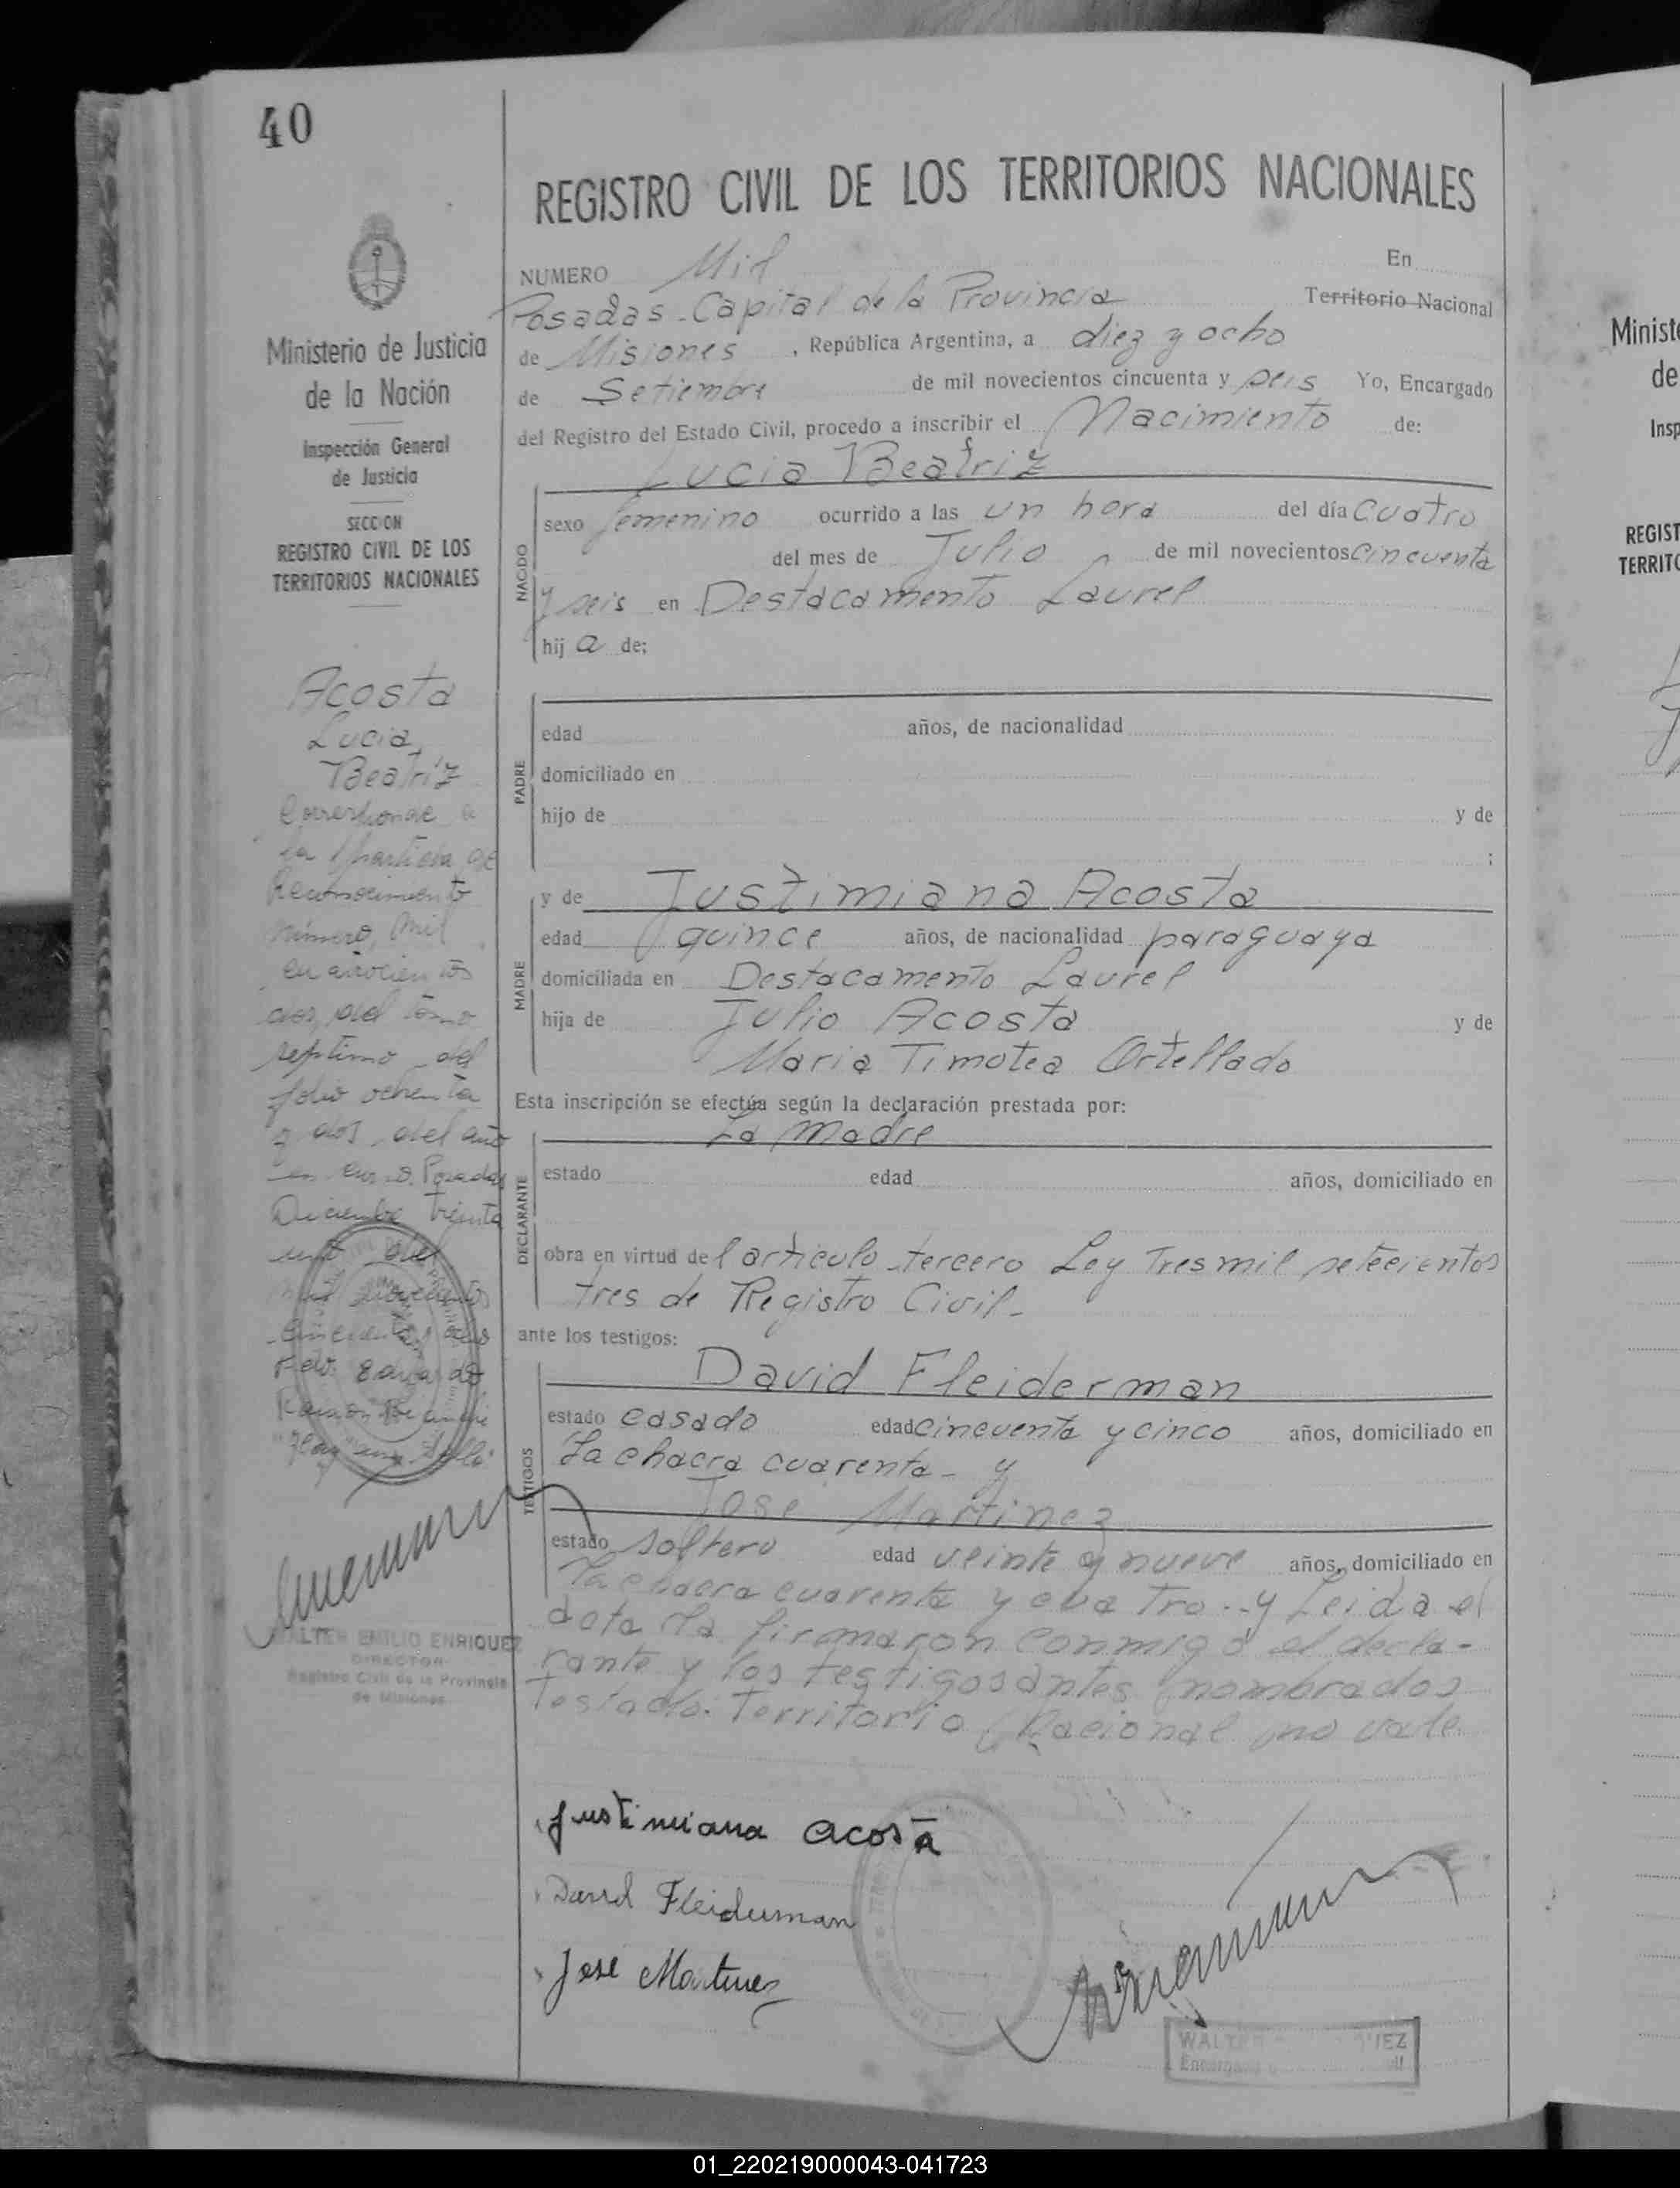 40
REGISTRO CIVIL DE LOS TERRITORIOS NACIONALES
Ministerio de Justicia
de la Nación
Inspección General
de Justicia
SECCION
REGISTRO CIVIL DE LOS
TERRITORIOS NACIONALES
Acosta
Lucia,
Beatriz
Corresponde a
la partida de
Reconocimiento
número, Mil
cuatrocientos
dos, del tomo
septimo del
folio ochenta
y dos, del año
en curso. Posadas
Diciembre treinta
uno del
mil novecientos
WALTER EMILIO ENRIQUEZ
DIRECTOR
Registro Civil de la Provincia
de Misiones
NUMERO Mil En
Posadas - Capital de la Provincia Territorio Nacional
de Misiones, República Argentina, a diez y ocho
de Setiembre de mil novecientos cincuenta y seis Yo, Encargado
del Registro del Estado Civil, procedo a inscribir el Nacimiento de:
Lucia Beatriz
NACIDO
sexo femenino ocurrido a las un hora del día cuatro
del mes de Julio de mil novecientos cincuenta
y seis en Destacamento Laurel
hij a de:
PADRE
edad años, de nacionalidad
domiciliado en
hijo de y de
;
MADRE
y de Justimiana Acosta
edad quince años, de nacionalidad paraguaya
domiciliada en Destacamento Laurel
hija de Julio Acosta y de
Maria Timotea Ortellado
Esta inscripción se efectúa según la declaración prestada por:
La madre
DECLARANTE
estado edad años, domiciliado en
obra en virtud del articulo tercero Ley Tres mil setecientos
tres de Registro Civil-
ante los testigos:
David Fleiderman
TESTIGOS
estado casado edad cincuenta y cinco años, domiciliado en
La chacra cuarenta - y
Jose Martinez
estado soltero edad veinte y nueve años, domiciliado en
La chacra cuarenta y cuatro.-y Leida el
acta la firmaron conmigo el decla-
rante y los testigos antes nombrados
Testado: Territorio Nacional no vale
Justimiana Acosta
David Fleiderman
José Martinez
Ministe
de
Insp
REGIST
TERRITO
01_220219000043-041723